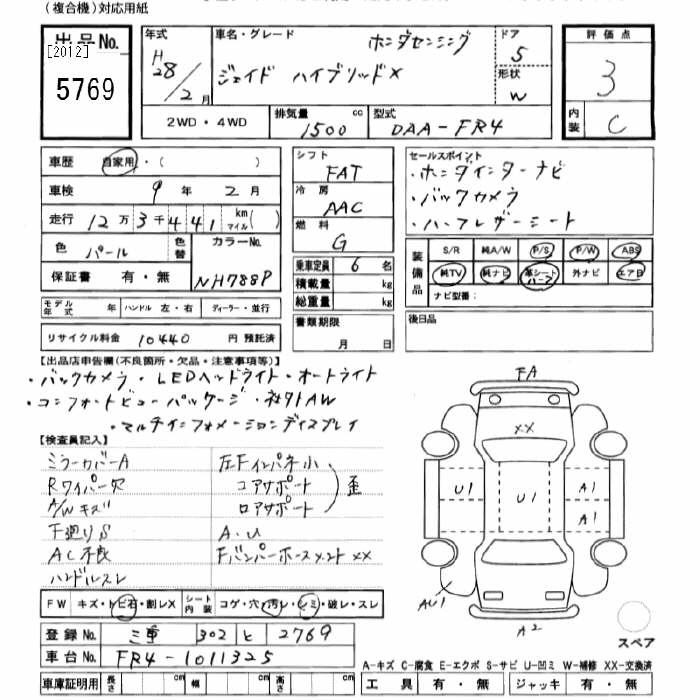 (複合機)対応用紙
出品No. [2012] 5769
年式 H28/2月
車名・グレード ホンダセンシング
ジェイド ハイブリッドX
ドア 5
形状 W
評価点 3
内装 C
2WD・4WD
排気量 1500 cc
型式 DAA-FR4
車歴 自家用・( )
車検 9年 2月
走行 12万3千441 km マイル( )
色 パール 色替 カラーNo. NH788P
保証書 有・無
シフト FAT
冷房 AAC
燃料 G
乗車定員 6名
積載量 kg
総重量 kg
書類期限 月 日
セールスポイント
・ホンダインターナビ
・バックカメラ
・ハーフレザーシート
装備品 S/R 純A/W P/S P/W ABS
純TV 純ナビ 革シート ハーフ 外ナビ エアB
ナビ型番:
後日品
モデル年式 年 ハンドル 左・右 ディーラー・並行
リサイクル料金 10440 円 預託済
【出品店申告欄(不良箇所・欠品・注意事項等)】
・バックカメラ・LEDヘッドライト・オートライト
・コンフォートビューパッケージ・社外AW
・マルチインフォメーションディスプレイ
【検査員記入】
ミラーカバーA
Rワイパー欠
A/Wキズ
下廻りS
AC不良
ハンドルスレ
左Fインパネ小
コアサポート
ロアサポート
歪
A・U
Fバンパーホースメント××
FW キズ・トビ石・割レX シート内装 コゲ・穴・汚レ・シミ・破レ・スレ
登録No. 三重 302 と 2769
車台No. FR4-1011325
車庫証明用 長さ cm 幅 cm 高さ cm
FA
××
U1
U1
A1
A1
AU1
A2
スペア
A-キズ C-腐食 E-エクボ S-サビ U-凹ミ W-補修 XX-交換済
工具 有・無 ジャッキ 有・無